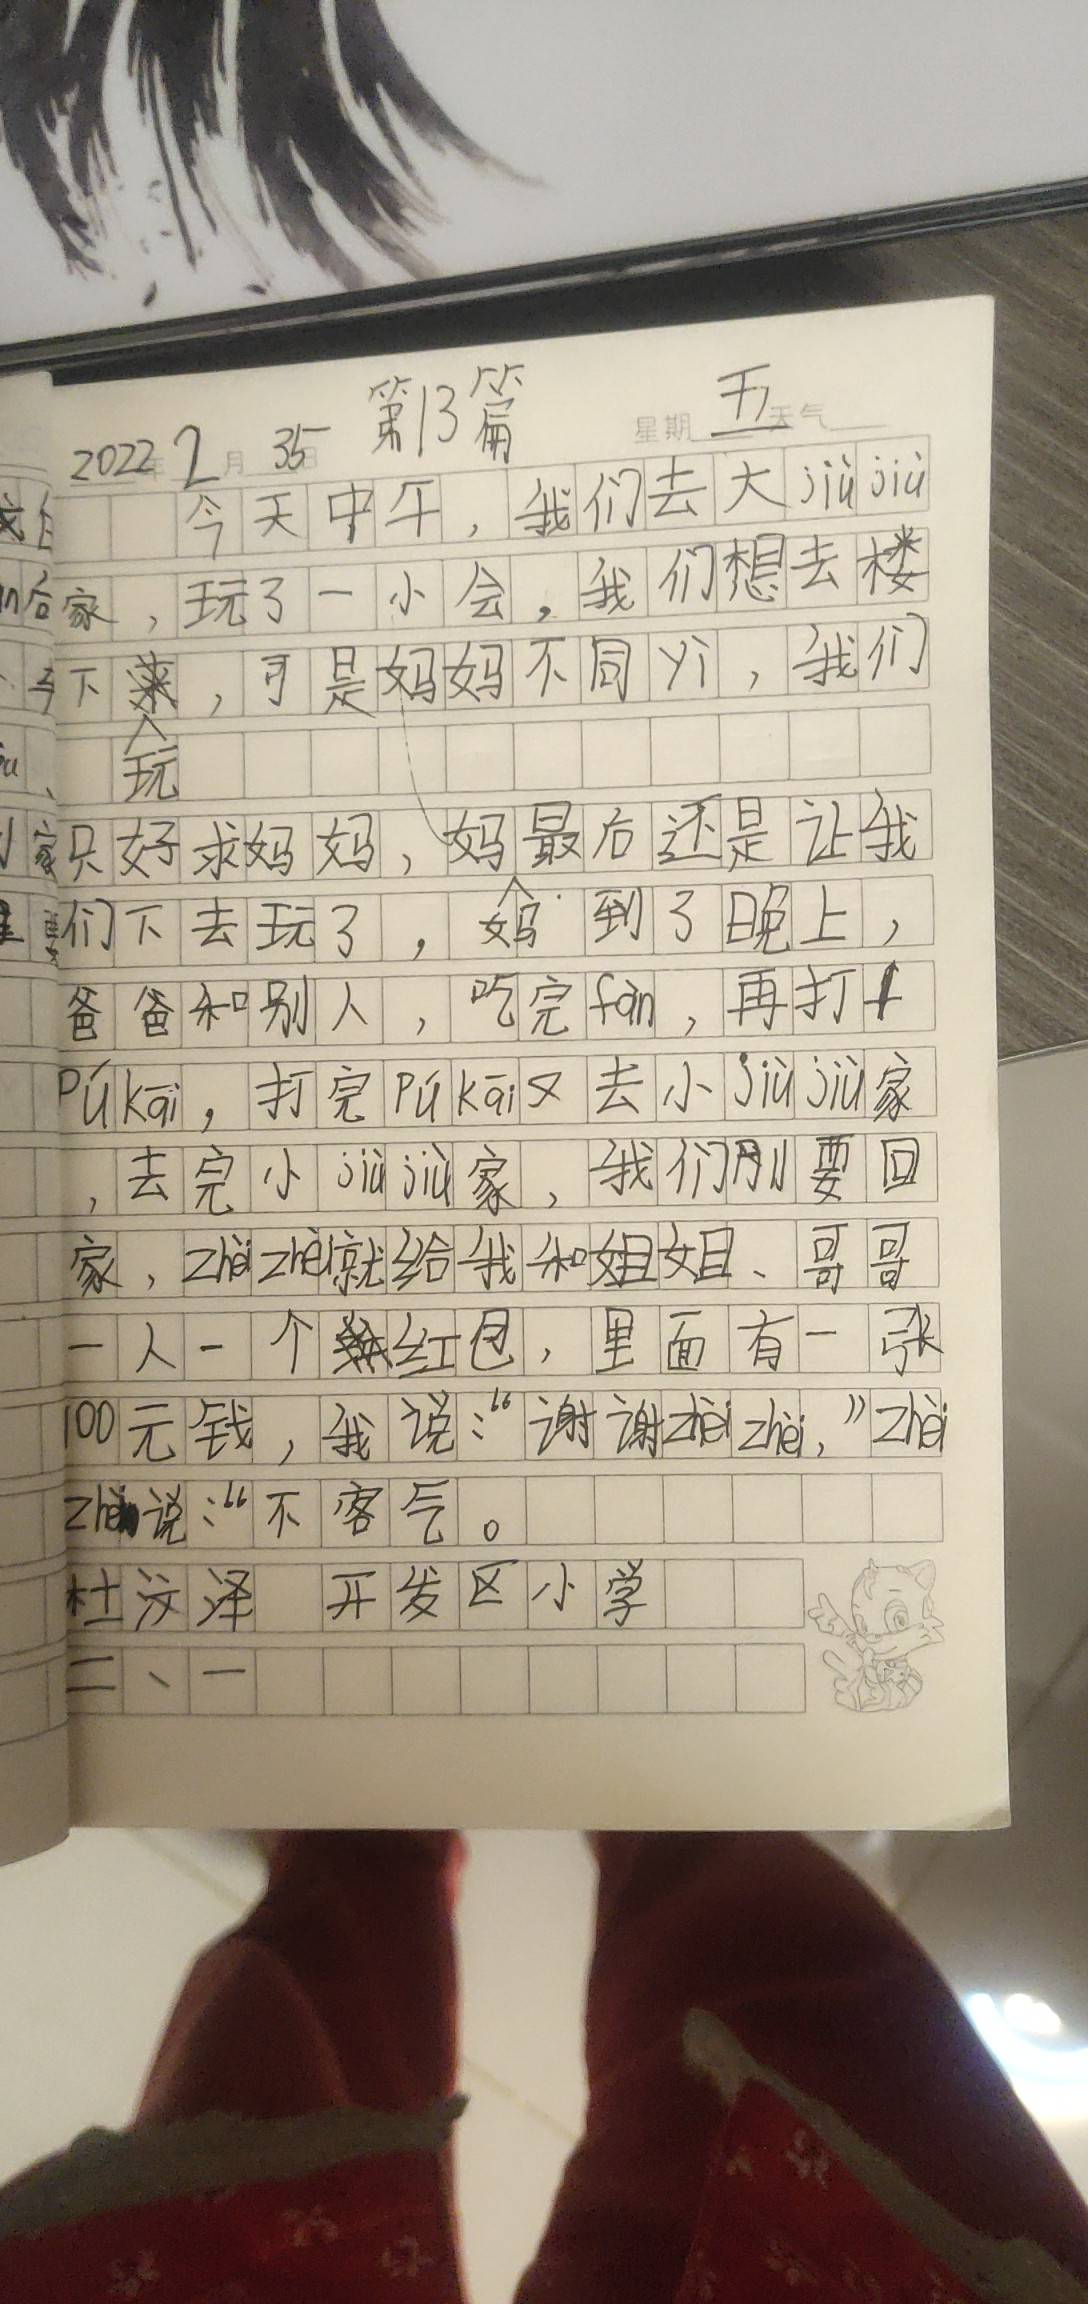 第13篇
2022年2月35日 星期五 天气
今天中午，我们去大jiùjiù
家，玩了一小会，我们想去楼
下玩，可是妈妈不同yì，我们
只好求妈妈，妈妈最后还是让我
们下去玩了，到了晚上，
爸爸和别人，吃完fàn，再打
Púkāi，打完Púkāi又去小jiùjiù家
，去完小jiùjiù家，我们刚要回
家，zhèizhèi就给我和姐姐、哥哥
一人一个红包，里面有一张
100元钱，我说：“谢谢zhèizhèi，”zhèi
zhèi说：“不客气。
杜汶泽 开发区小学
二、一